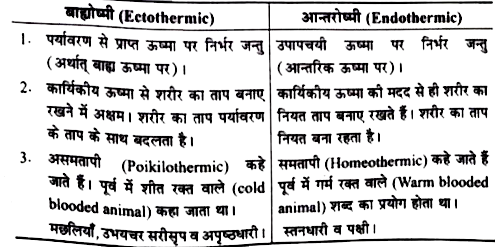 बाह्योष्मी (Ectothermic)
आन्तरोष्मी (Endothermic)
1. पर्यावरण से प्राप्त ऊष्मा पर निर्भर जन्तु
(अर्थात् बाह्य ऊष्मा पर)।
उपापचयी ऊष्मा पर निर्भर जन्तु
(आन्तरिक ऊष्मा पर)।
2. कार्यिकीय ऊष्मा से शरीर का ताप बनाए
रखने में अक्षम। शरीर का ताप पर्यावरण
के ताप के साथ बदलता है।
कार्यिकीय ऊष्मा की मदद से ही शरीर का
नियत ताप बनाए रखते हैं। शरीर का ताप
नियत बना रहता है।
3. असमतापी (Poikilothermic) कहे
जाते हैं। पूर्व में शीत रक्त वाले (cold
blooded animal) कहा जाता था।
मछलियाँ, उभयचर सरीसृप व अपृष्ठधारी।
समतापी (Homeothermic) कहे जाते हैं
पूर्व में गर्म रक्त वाले (Warm blooded
animal) शब्द का प्रयोग होता था।
स्तनधारी व पक्षी।